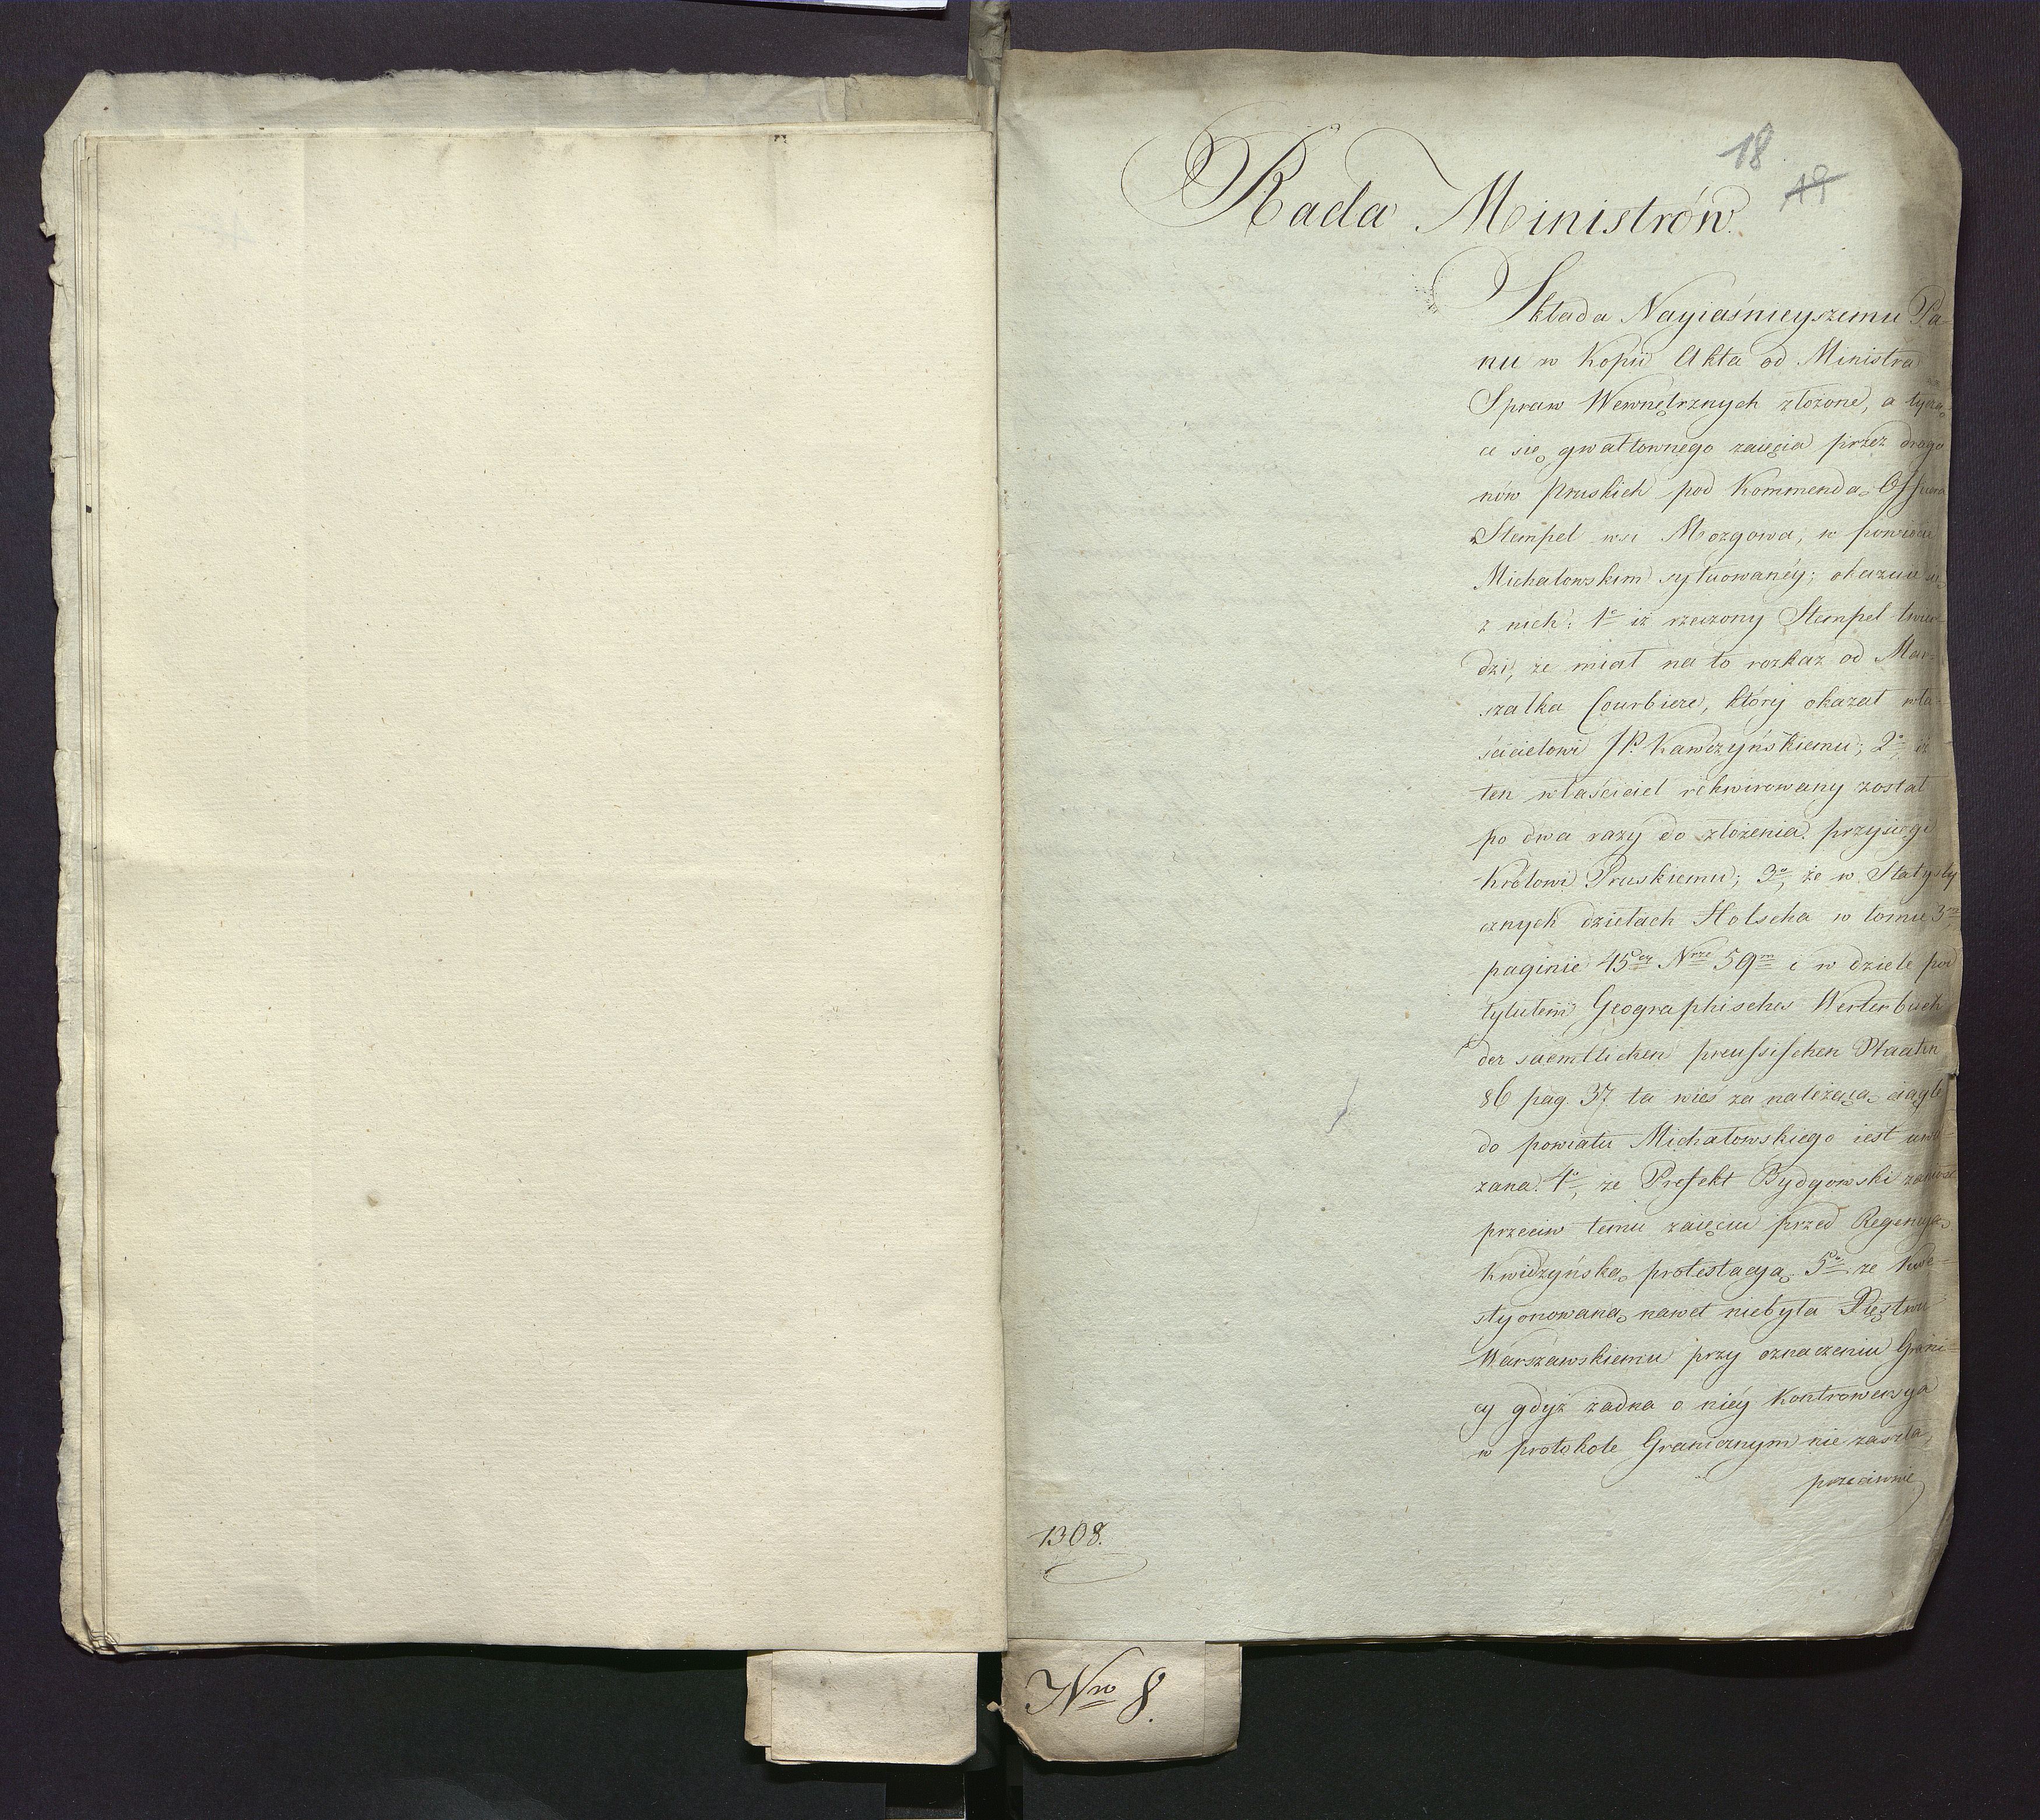 18
19
Rada Ministrów.
Składa Nayiaśnieyszemu Pa-
nu w Kopii Akta od Ministra
Spraw Wewnętrznych złożone, a tycza
ce się gwałtownego zaięcia przez drago
nów Pruskich pod Kommendą Officera
Stempel wsi Mozgowa, w powiecie
Michałowskim sytuowanéy; okazuie się
z nich: 1o iż rzeczony Stempel twier-
dzi, że miał na to rozkaz od Mar-
szałka Courbiere, który okazał wła-
ścicielowi JP. Kawczyńskiemu; 2o iż
ten właściciel rekwirowany został
po dwa razy do złożenia przysięgi
Królowi Pruskiemu; 3o, że w Statysty
cznych dziełach Holscha w tomie 3m
paginie 45tey Nrze 59m i w dziele pod
tytułem Geographisches Werterbuch
der saemtlichen preussischen Staaten
86 pag. 37 ta wieś za należącą ciągle
do powiatu Michałowskiego iest uwa-
żana. 4o, że Prefekt Bydgowski zaniósł
przeciw temu zaięciu przed Regencyą
Kwidzyńską protestacyą 5o że Kwe-
styonowaną nawet niebyła Xięstwu
Warszawskiemu przy oznaczeniu Grani-
cy gdyż żadna o niéy Kontrowersya
w protokole Granicznym nie zaszła,
przeciwnie
1308.
Nro 8.